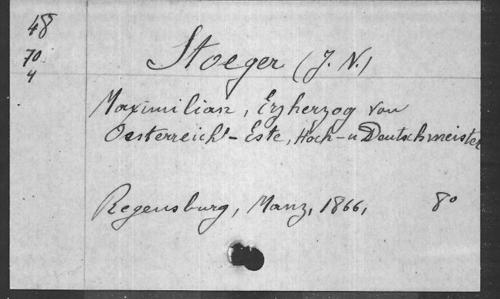 48
70
4
Stoeger (J. N.)
Maximilian, Erzherzog von
Oesterreich-Este, Hoch-u Deutschmeister
Regensburg, Manz, 1866, 8°